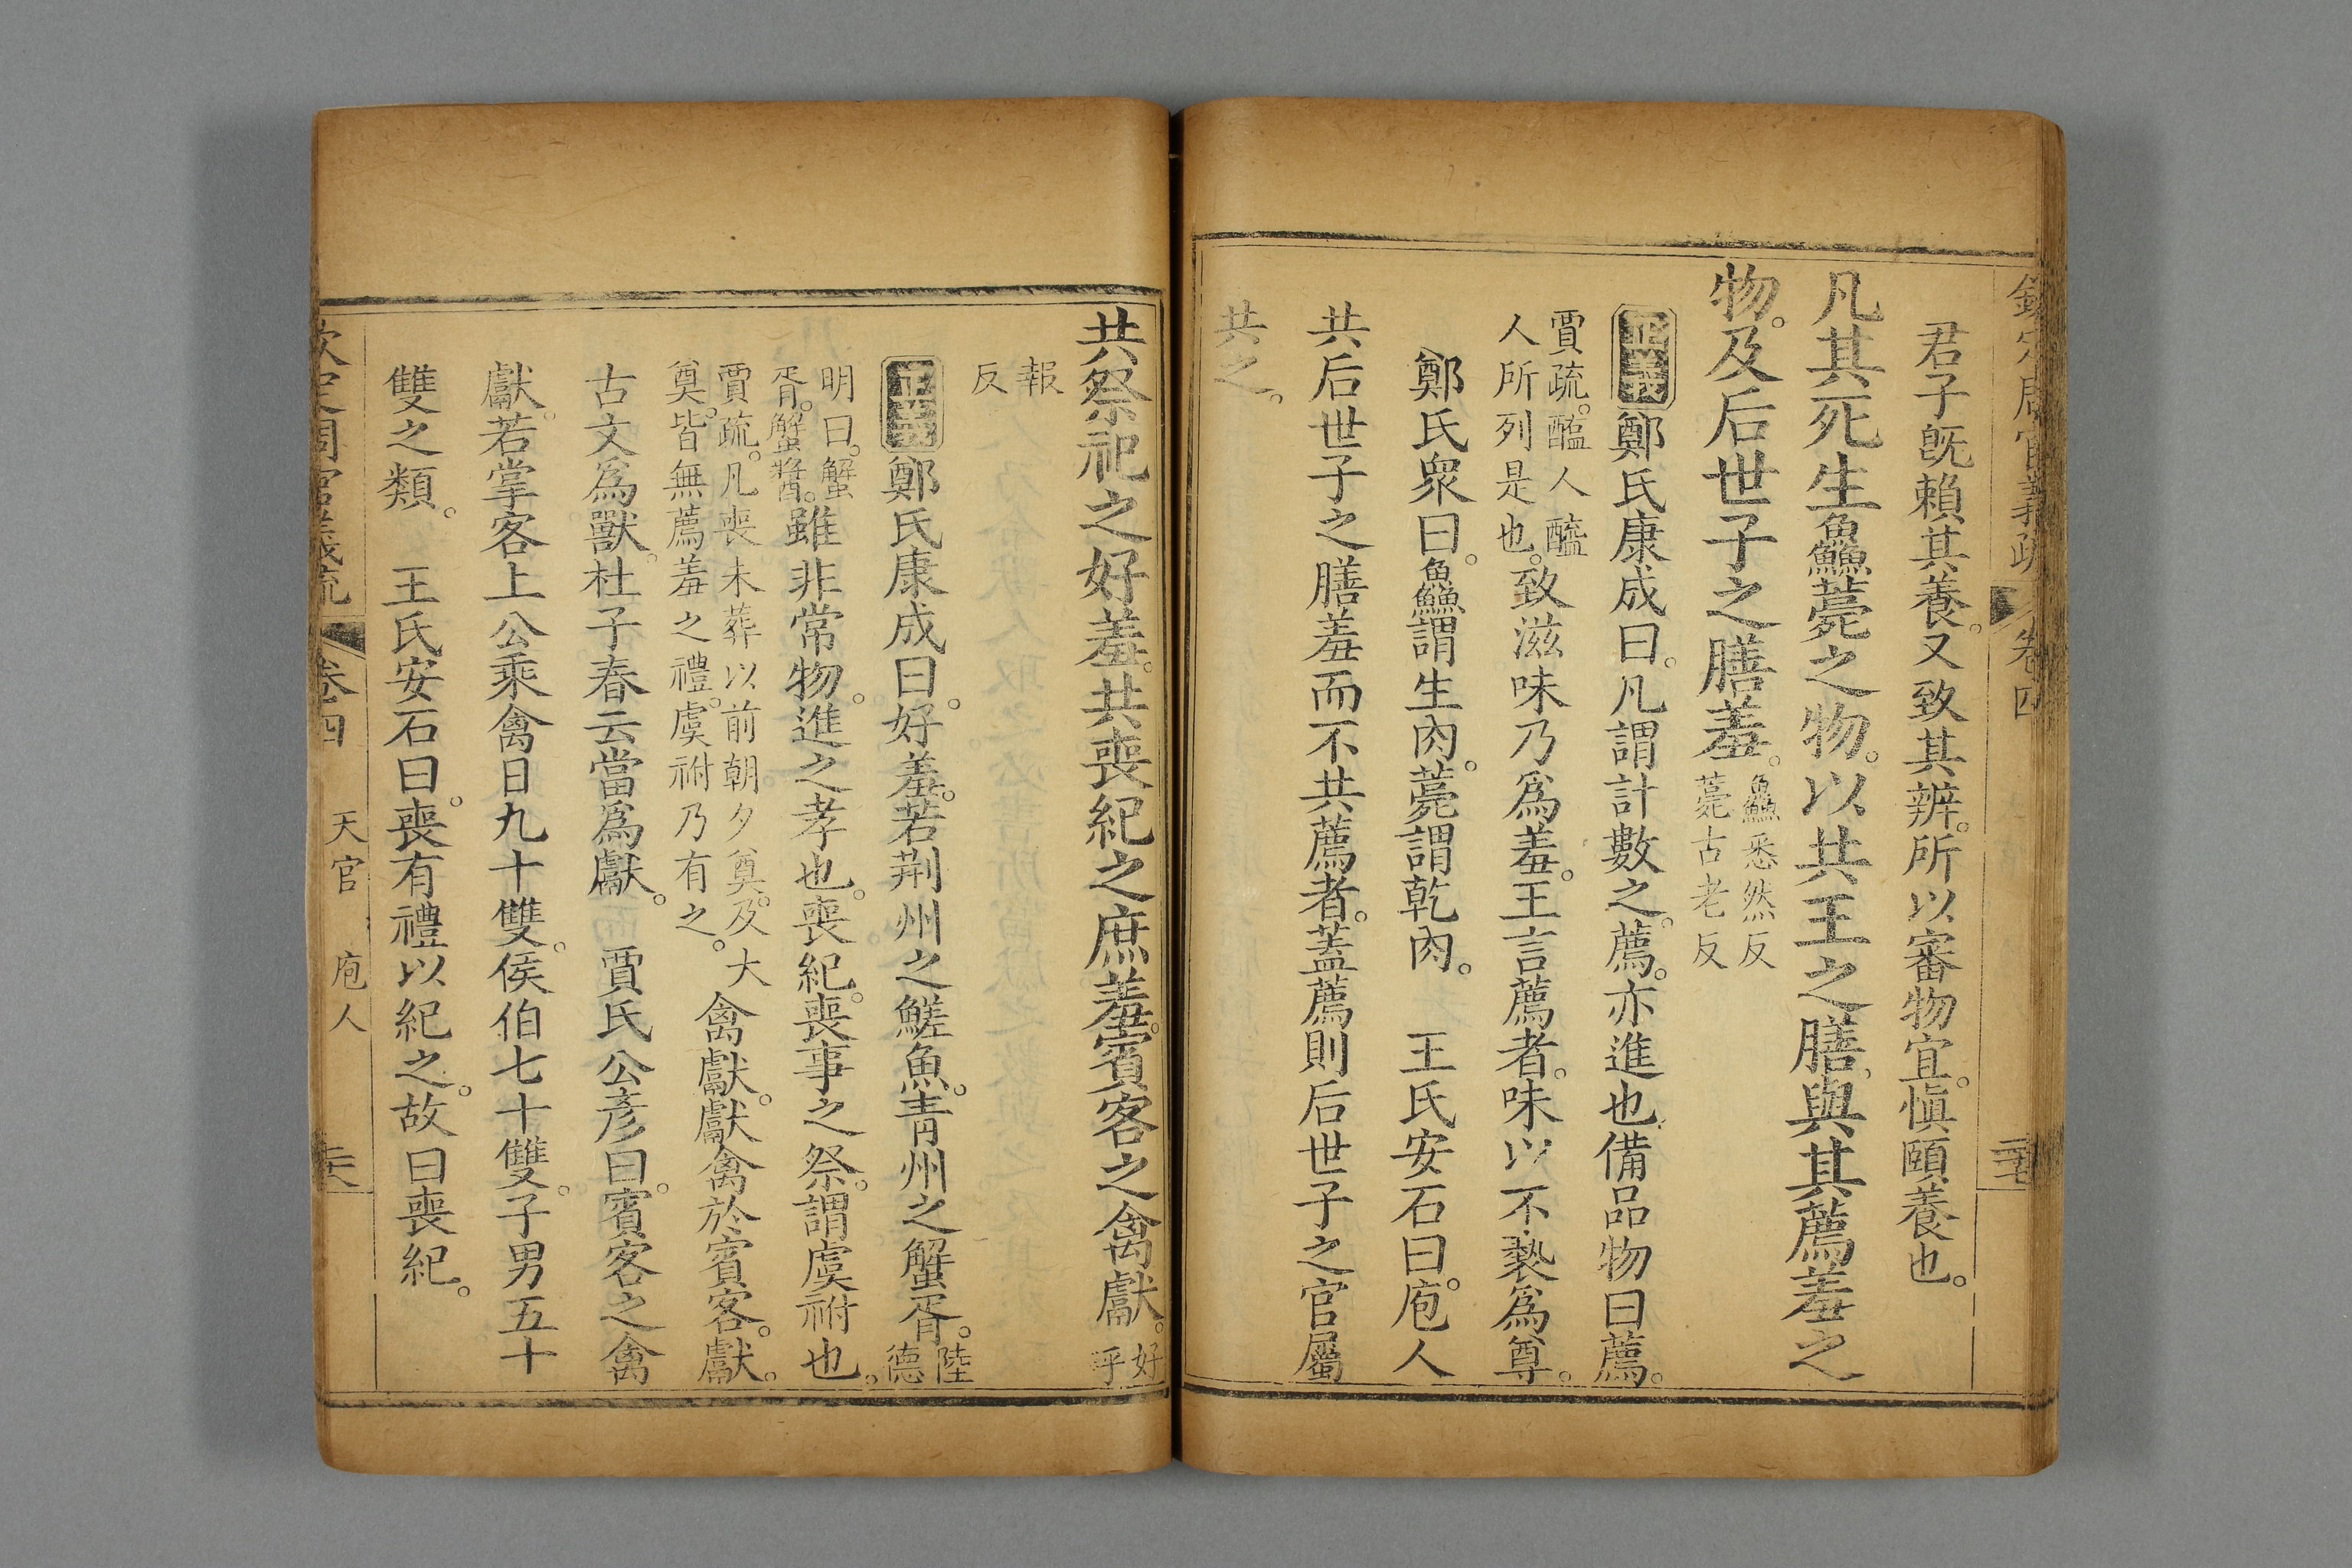 欽定周官義疏 卷四
君子旣賴其養。又致其辨。所以審物宜。愼頤養也。
凡其死生鱻薧之物。以共王之膳。與其薦羞之
物。及后世子之膳羞。鱻悉然反
薧古老反
正義鄭氏康成曰。凡謂計數之。薦。亦進也備品物曰薦。
賈疏。醢人醯
人所列是也。致滋味乃爲羞。王言薦者。味以不褻爲尊。
鄭氏衆曰。鱻謂生肉。薧謂乾肉。 王氏安石曰。庖人
共后世子之膳羞而不共薦者。蓋薦則后世子之官屬
共之。
共祭祀之好羞。共喪紀之庶羞。賓客之禽獻。好
乎
報
反
正義鄭氏康成曰。好羞。若荆州之鱃魚。靑州之蟹胥。陸
德
明曰。蟹
胥。蟹醬。雖非常物。進之孝也。喪紀。喪事之祭。謂虞祔也。
賈疏。凡喪未葬以前朝夕奠。及大
奠。皆無薦羞之禮。虞祔乃有之。禽獻。獻禽於賓客。獻。
古文爲獸。杜子春云當爲獻。 賈氏公彥曰。賓客之禽
獻。若掌客上公乘禽日九十雙。侯伯七十雙。子男五十
雙之類。 王氏安石曰。喪有禮以紀之。故曰喪紀。
欽定周官義疏 卷四 天官 庖人